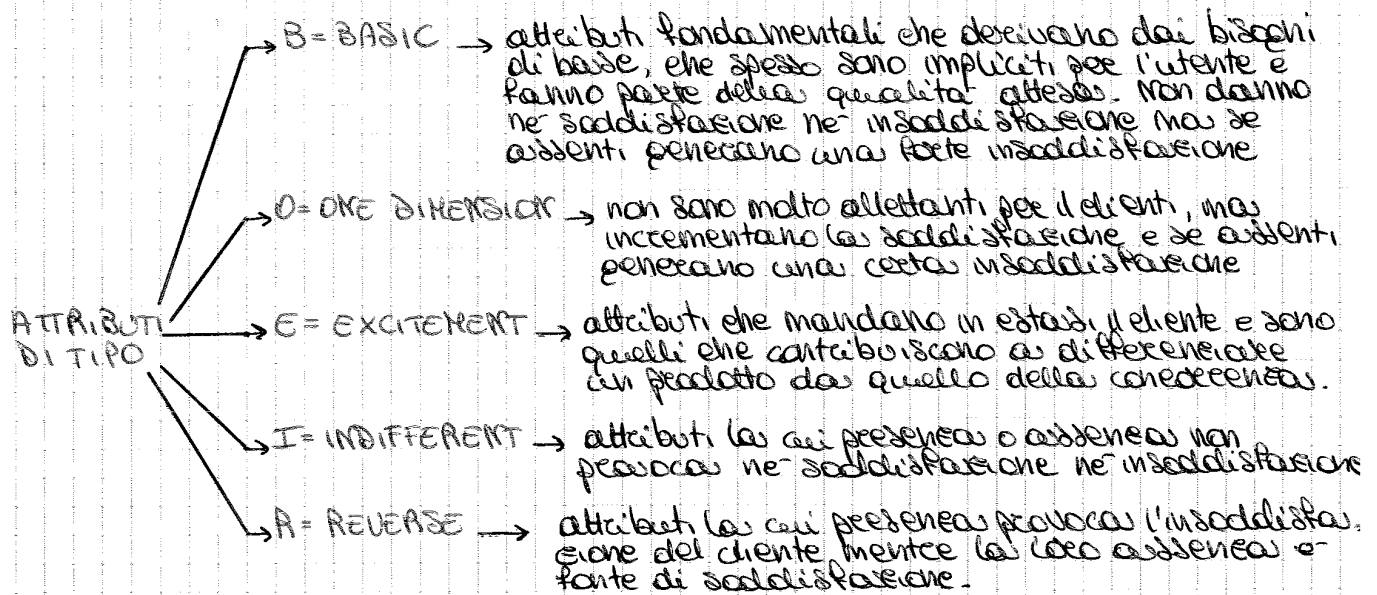 B = BASIC → attributi fondamentali che derivano dai bisogni
di base, che spesso sono impliciti per l'utente e
fanno parte della qualità attesa. Non danno
nè soddisfazione nè insoddisfazione ma se
assenti generano una forte insoddisfazione
O = ONE DIMENSION → non sono molto allettanti per il clienti, ma
incrementano la soddisfazione e se assenti
generano una certa insoddisfazione
ATTRIBUTI
DI TIPO
E = EXCITEMENT → attributi che mandano in estasi il cliente e sono
quelli che contribuiscono a differenziare
un prodotto da quello della concorrenza.
I = INDIFFERENT → attributi la cui presenza o assenza non
provoca nè soddisfazione nè insoddisfazione
R = REVERSE → attributi la cui presenza provoca l'insoddisfa-
zione del cliente mentre la loro assenza è
fonte di soddisfazione.